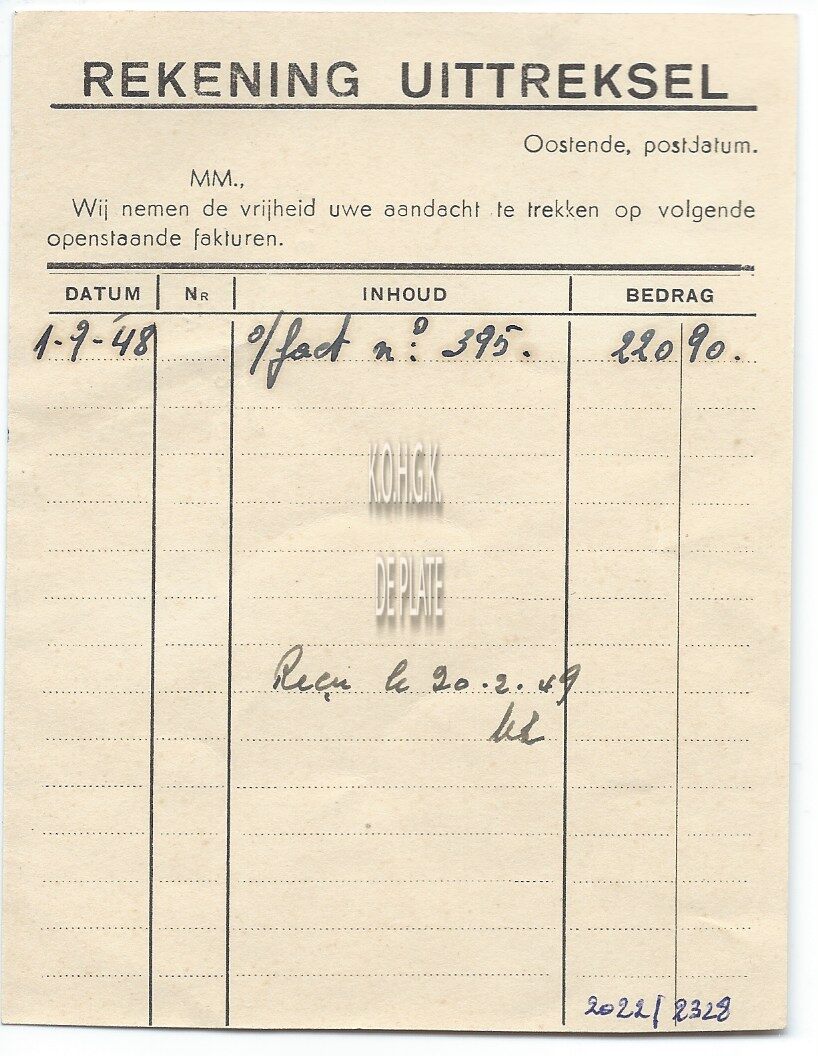 REKENING UITTREKSEL
Oostende, postdatum.
MM.,
Wij nemen de vrijheid uwe aandacht te trekken op volgende
openstaande fakturen.
DATUM NR INHOUD BEDRAG
1-9-48 o/fact nº: 395. 220 90.
K.O.H.G.K.
DE PLATE
Reçu le 20.2.49
2022/2328